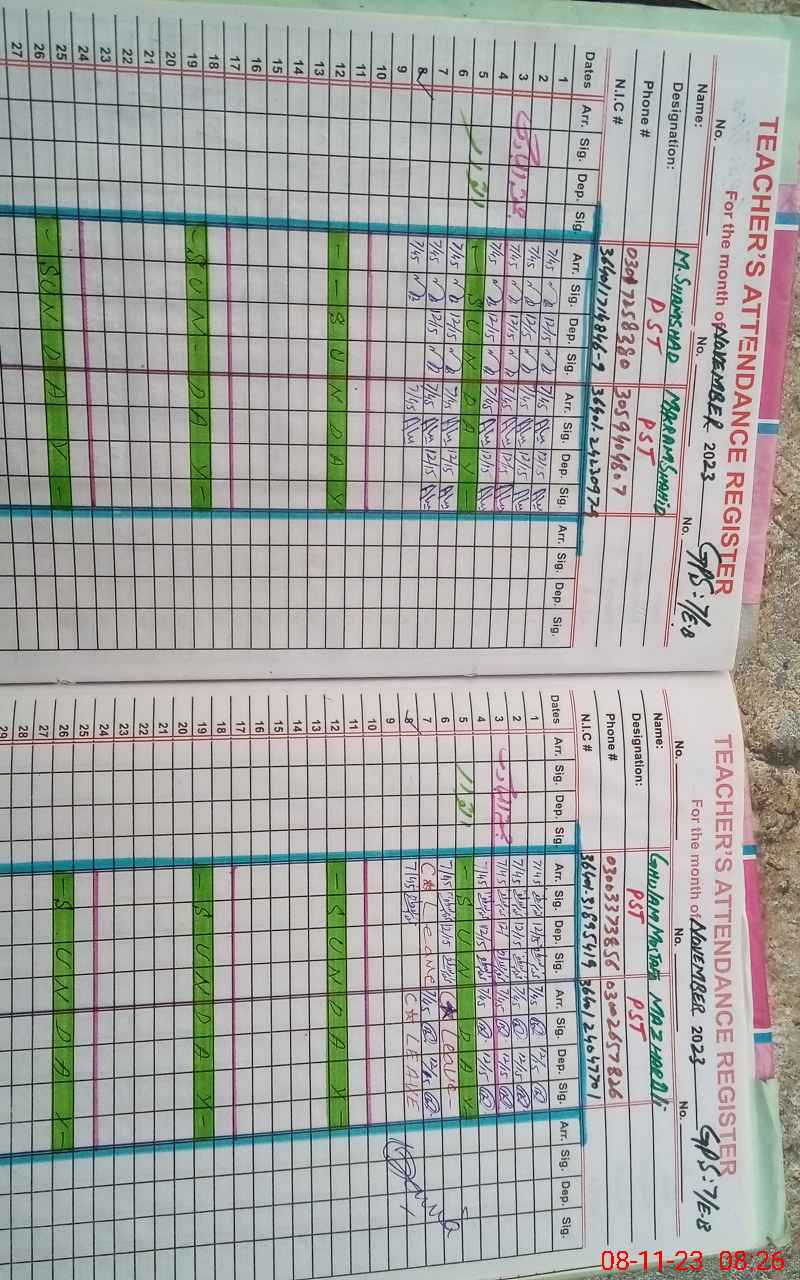 TEACHER'S ATTENDANCE REGISTER
For the month of NOVEMBER 2023 GPS: 7/E.B
No. No. No.
Name: M. SHAMSHAD MARAM SHAHID
Designation: PST PST
Phone # 3059404807
N.I.C #
Dates Arr. Sig. Dep. Sig. Arr. Sig. Dep. Sig. Arr. Sig. Dep. Sig. Arr. Sig. Dep. Sig.
1 7/45 12/15 7/45 12/15
2 7/45 12/15 7/45 12/15
3 7/45 12/15 7/45 12/15
4 7/45 12/15 7/45 12/15
5 - SUNDAY -
6 7/45 12/15 7/45 12/15
7 7/45 12/15 7/45 12/15
8 7/45 7/45
9
10
11
12 - - SUNDAY
13
14
15
16
17
18
19 - SUNDAY -
20
21
22
23
24
25 - SUNDAY -
26
27
TEACHER'S ATTENDANCE REGISTER
For the month of NOVEMBER 2023 GPS: 7/E.B
No. No. No.
Name: GHULAM MAZHAR ALI
Designation: PST PST
Phone # 03003373856 03002657826
N.I.C #
Dates Arr. Sig. Dep. Sig. Arr. Sig. Dep. Sig. Arr. Sig. Dep. Sig. Arr. Sig. Dep. Sig.
1 7/45 12/15 7/45 12/15
2 7/45 12/15 7/45 12/15
3 7/45 7/45 12/15
4 7/45 12/15 7/45 12/15
5 - SUNDAY -
6 7/45 12/15 Leave
7 Leave 7/45 12/15
8 7/45 LEAVE
9
10
11
12 - SUNDAY -
13
14
15
16
17
18
19 - SUNDAY -
20
21
22
23
24
25
26 - SUNDAY -
27
28
29
08-11-23 08:26